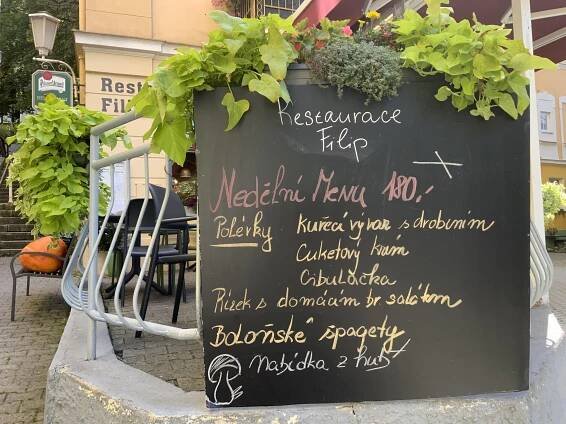 Restaurace
Filip
Nedělní Menu 180,-
Polévky Kuřecí vývar s drobením
Cuketový krém
Cibulačka
Řízek s domácím br salátem
Boloňské špagety
Nabídka z hub
Rest
Fil